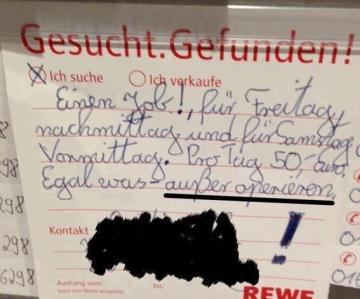 Gesucht.Gefunden!
Ich suche Ich verkaufe
Einen Job!, für Freitag,
nachmittag und für Samstag
Vormittag. Pro Tag 50,- Euro.
Egal was - außer operieren,
!
Kontakt
Aushang vom: bis:
REWE
298
298
6298